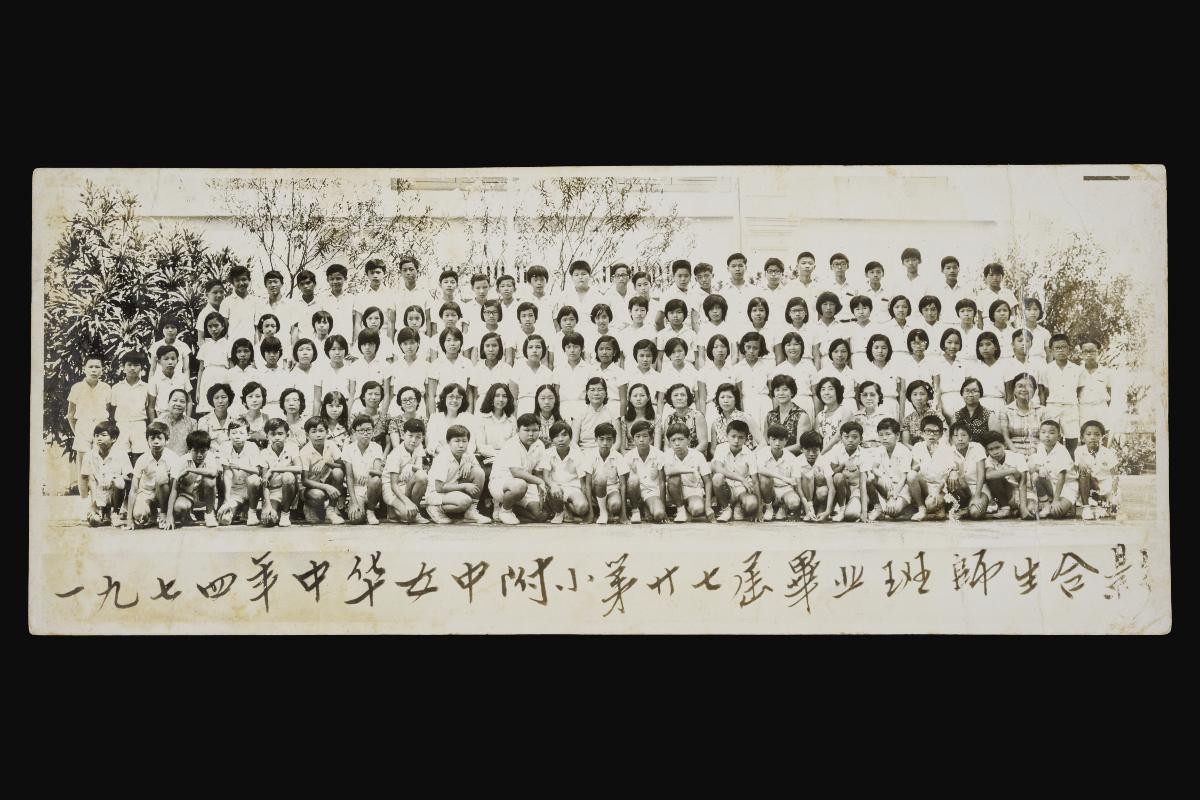 一九七四年中华女中附小第廿七届畢业班師生合影